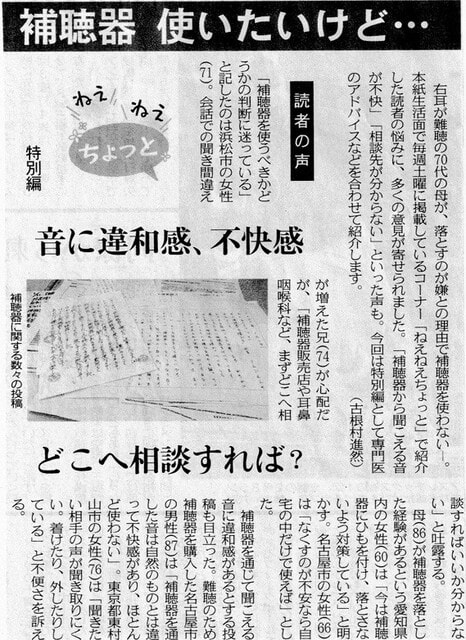 補聴器 使いたいけど…
右耳が難聴の70代の母が、落とすのが嫌との理由で補聴器を使わない―。
本紙生活面で毎週土曜に掲載しているコーナー「ねえねえちょっと」で紹介
した読者の悩みに、多くの意見が寄せられました。「補聴器から聞こえる音
が不快」「相談先が分からない」といった声も。今回は特別編として専門医
のアドバイスなどを合わせて紹介します。
（古根村進然）
ねぇ
ねぇ
ちょっと
特別編
読者の声
「補聴器を使うべきかど
うかの判断に迷っている」
と記したのは浜松市の女性
（71）。会話での聞き間違え
音に違和感、不快感
が増えた兄（74）が心配だ
が、「補聴器販売店や耳鼻
咽喉科など、まずどこへ相
補聴器に関する数々の投稿
どこへ相談すれば？
談すればいいか分からな
い」と吐露する。
母（86）が補聴器を落とし
た経験があるという愛知県
内の女性（60）は「今は補聴
器にひもを付け、落とさな
いよう対策している」と明
かす。名古屋市の女性（66）
は「なくすのが不安なら自
宅の中だけで使えば」とし
た。
補聴器を通じて聞こえる
音に違和感があるとする投
稿も目立った。難聴のため
補聴器を購入した名古屋市
の男性（87）は「補聴器を通
した音は自然のものとは違
って不快感があり、ほとん
ど使わない」。東京都東村
山市の女性（76）は「聞きた
い相手の声が聞き取りにく
い。着けたり、外したりし
ている」と不便さを訴え
る。